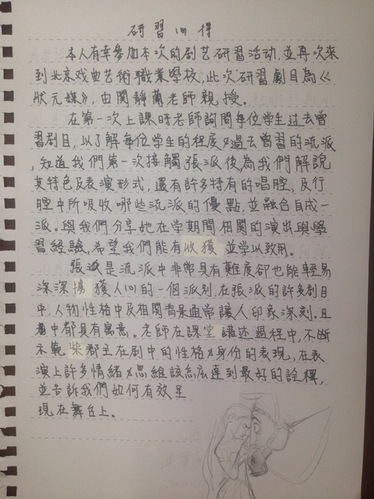 研習心得
本人有幸參加本次的剧艺研習活动,並再次來
到北京戏曲艺術職業學校,此次研習劇目為《
狀元媒》,由閻靜蘭老師親授。
在第一次上課時老師詢問每位學生过去曾
習剧目,以了解每位学生的程度及過去曾習的流派
,知道我們第一次接觸張派後為我們解說
其特色及表演形式,還有許多特有的唱腔,及行
腔中所吸收哪些流派的優點,並融合自成一
派,與我們分享她在学期間相關的演出與學
習經驗,希望我們能有收獲並学以致用。
張派是流派中非常具有難度卻也能輕易
深深擄獲人心的一個派别,在張派的許多剧目
中,人物性格中及相関背景血常讓人印象深刻,且
著中都具有寓意。老師在課堂講述過程中,不断
示範柴郡主在剧中的性格及身份的表現,在表
演上許多情緒及思維該怎麼達到最好的詮釋,
並告訴我們如何有效呈
現在舞台上。